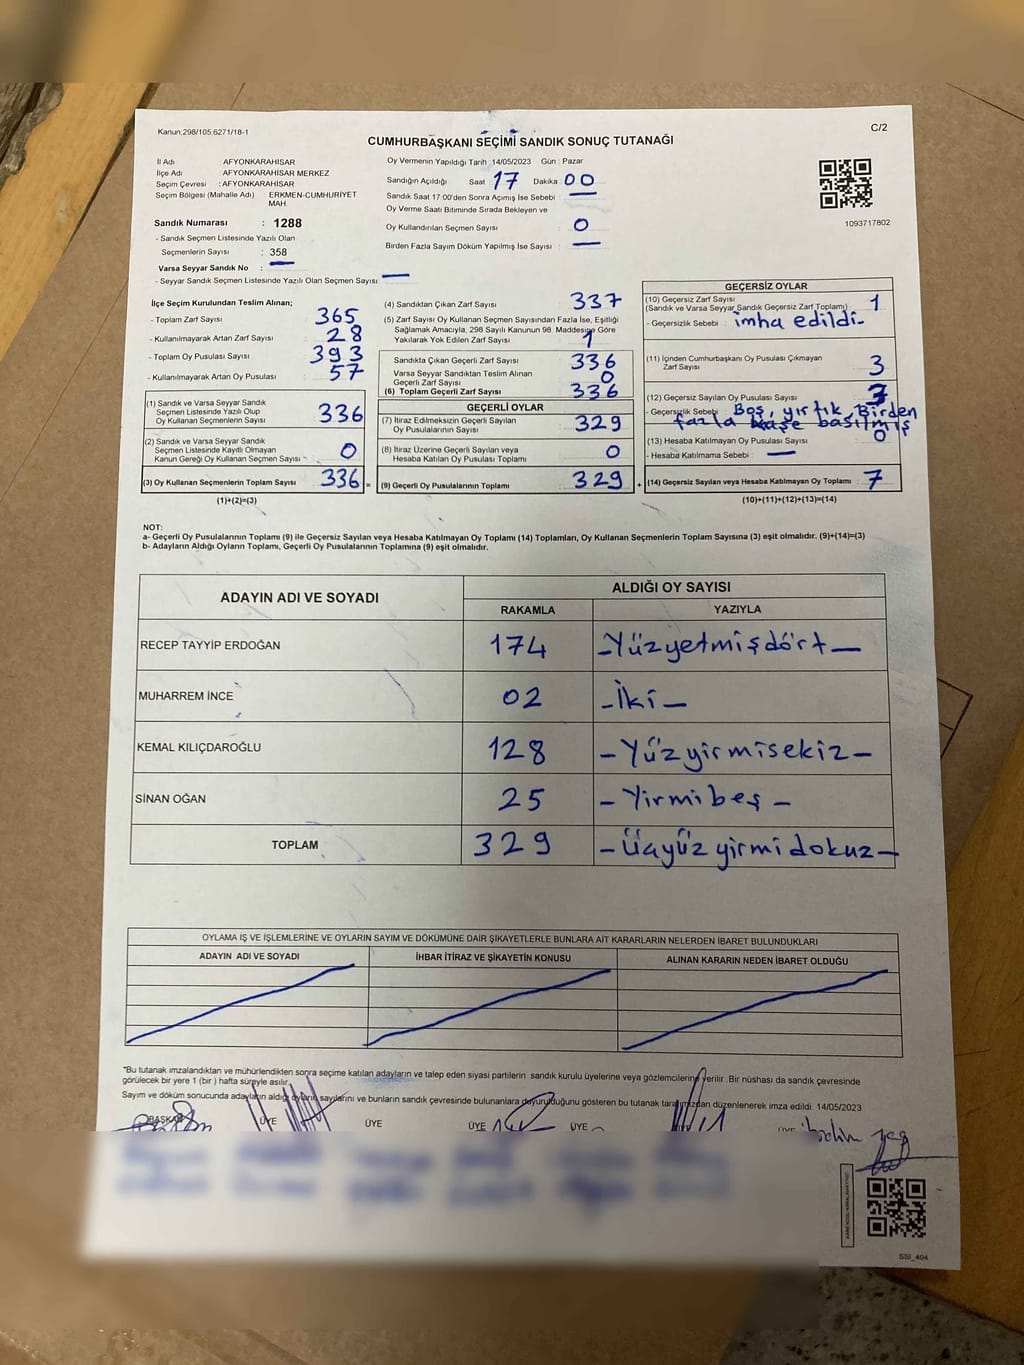 Kanun,298/105,6271/18-1
C/2
CUMHURBAŞKANI SEÇİMİ SANDIK SONUÇ TUTANAĞI
İl Adı : AFYONKARAHİSAR
İlçe Adı : AFYONKARAHİSAR MERKEZ
Seçim Çevresi : AFYONKARAHİSAR
Seçim Bölgesi (Mahalle Adı) : ERKMEN-CUMHURİYET MAH.
Sandık Numarası : 1288
- Sandık Seçmen Listesinde Yazılı Olan
Seçmenlerin Sayısı : 358
Varsa Seyyar Sandık No : —
- Seyyar Sandık Seçmen Listesinde Yazılı Olan Seçmen Sayısı: —
Oy Vermenin Yapıldığı Tarih :14/05/2023 Gün : Pazar
Sandığın Açıldığı Saat 17 Dakika 00
Sandık Saat 17.00'den Sonra Açımış İse Sebebi : —
Oy Verme Saati Bitiminde Sırada Bekleyen ve
Oy Kullandırılan Seçmen Sayısı : 0
Birden Fazla Sayım Döküm Yapılmış İse Sayısı : —
1093717802
İlçe Seçim Kurulundan Teslim Alınan;
- Toplam Zarf Sayısı : 365
- Kullanılmayarak Artan Zarf Sayısı : 28
- Toplam Oy Pusulası Sayısı : 393
- Kullanılmayarak Artan Oy Pusulası : 57
(1) Sandık ve Varsa Seyyar Sandık
Seçmen Listesinde Yazılı Olup
Oy Kullanan Seçmenlerin Sayısı : 336
(2) Sandık ve Varsa Seyyar Sandık
Seçmen Listesinde Kayıtlı Olmayan
Kanun Gereği Oy Kullanan Seçmen Sayısı : 0
(3) Oy Kullanan Seçmenlerin Toplam Sayısı : 336 =
(1)+(2)=(3)
(4) Sandıktan Çıkan Zarf Sayısı : 337
(5) Zarf Sayısı Oy Kullanan Seçmen Sayısından Fazla İse, Eşitliği
Sağlamak Amacıyla, 298 Sayılı Kanunun 98. Maddesine Göre
Yakılarak Yok Edilen Zarf Sayısı : 1
Sandıkta Çıkan Geçerli Zarf Sayısı : 336
Varsa Seyyar Sandıktan Teslim Alınan
Geçerli Zarf Sayısı : 0
(6) Toplam Geçerli Zarf Sayısı : 336
GEÇERLİ OYLAR
(7) İtiraz Edilmeksizin Geçerli Sayılan
Oy Pusulalarının Sayısı : 329
(8) İtiraz Üzerine Geçerli Sayılan veya
Hesaba Katılan Oy Pusulası Toplamı : 0
(9) Geçerli Oy Pusulalarının Toplamı : 329 +
GEÇERSİZ OYLAR
(10) Geçersiz Zarf Sayısı
(Sandık ve Varsa Seyyar Sandık Geçersiz Zarf Toplamı) : 1
- Geçersizlik Sebebi : imha edildi-
(11) İçinden Cumhurbaşkanı Oy Pusulası Çıkmayan
Zarf Sayısı : 3
(12) Geçersiz Sayılan Oy Pusulası Sayısı : 3
- Geçersizlik Sebebi : Boş, yırtık, Birden
fazla kaşe basılmış
(13) Hesaba Katılmayan Oy Pusulası Sayısı : 0
- Hesaba Katılmama Sebebi : —
(14) Geçersiz Sayılan veya Hesaba Katılmayan Oy Toplamı : 7
(10)+(11)+(12)+(13)=(14)
NOT:
a- Geçerli Oy Pusulalarının Toplamı (9) ile Geçersiz Sayılan veya Hesaba Katılmayan Oy Toplamı (14) Toplamları, Oy Kullanan Seçmenlerin Toplam Sayısına (3) eşit olmalıdır. (9)+(14)=(3)
b- Adayların Aldığı Oyların Toplamı, Geçerli Oy Pusulalarının Toplamına (9) eşit olmalıdır.
ADAYIN ADI VE SOYADI
ALDIĞI OY SAYISI
RAKAMLA YAZIYLA
RECEP TAYYİP ERDOĞAN 174 -Yüzyetmişdört-
MUHARREM İNCE 02 -İki-
KEMAL KILIÇDAROĞLU 128 -Yüzyirmisekiz-
SİNAN OĞAN 25 -Yirmibeş-
TOPLAM 329 -Üçyüzyirmidokuz-
OYLAMA İŞ VE İŞLEMLERİNE VE OYLARIN SAYIM VE DÖKÜMÜNE DAİR ŞİKAYETLERLE BUNLARA AİT KARARLARIN NELERDEN İBARET BULUNDUKLARI
ADAYIN ADI VE SOYADI İHBAR İTİRAZ VE ŞİKAYETİN KONUSU ALINAN KARARIN NEDEN İBARET OLDUĞU
*Bu tutanak imzalandıktan ve mühürlendikten sonra seçime katılan adayların ve talep eden siyasi partilerin sandık kurulu üyelerine veya gözlemcilerine verilir. Bir nüshası da sandık çevresinde
görülecek bir yere 1 (bir) hafta süreyle asılır.
Sayım ve döküm sonucunda adayların aldığı oyların sayılarını ve bunların sandık çevresinde bulunanlara duyurulduğunu gösteren bu tutanak tarafımızdan düzenlenerek imza edildi. 14/05/2023
BAŞKAN ÜYE ÜYE ÜYE ÜYE
SSI_404